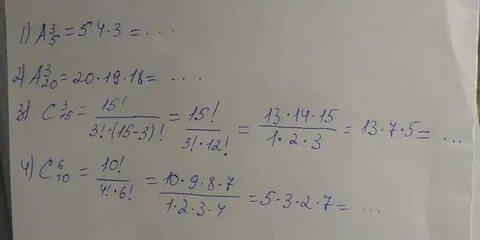 1) A₅³ = 5·4·3 = ...
2) A₂₀³ = 20·19·18 = ...
3) C₁₅³ = 15! / 3!·(15-3)! = 15! / 3!·12! = 13·14·15 / 1·2·3 = 13·7·5 = ...
4) C₁₀⁶ = 10! / 4!·6! = 10·9·8·7 / 1·2·3·4 = 5·3·2·7 = ...